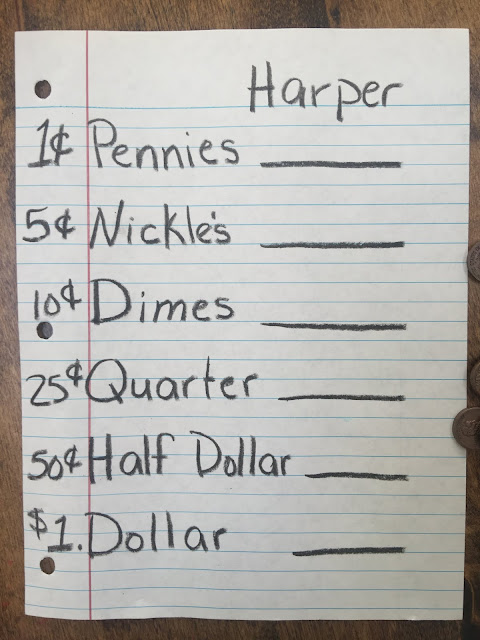 Harper
1¢ Pennies
5¢ Nickle's
10¢ Dimes
25¢ Quarter
50¢ Half Dollar
$1. Dollar